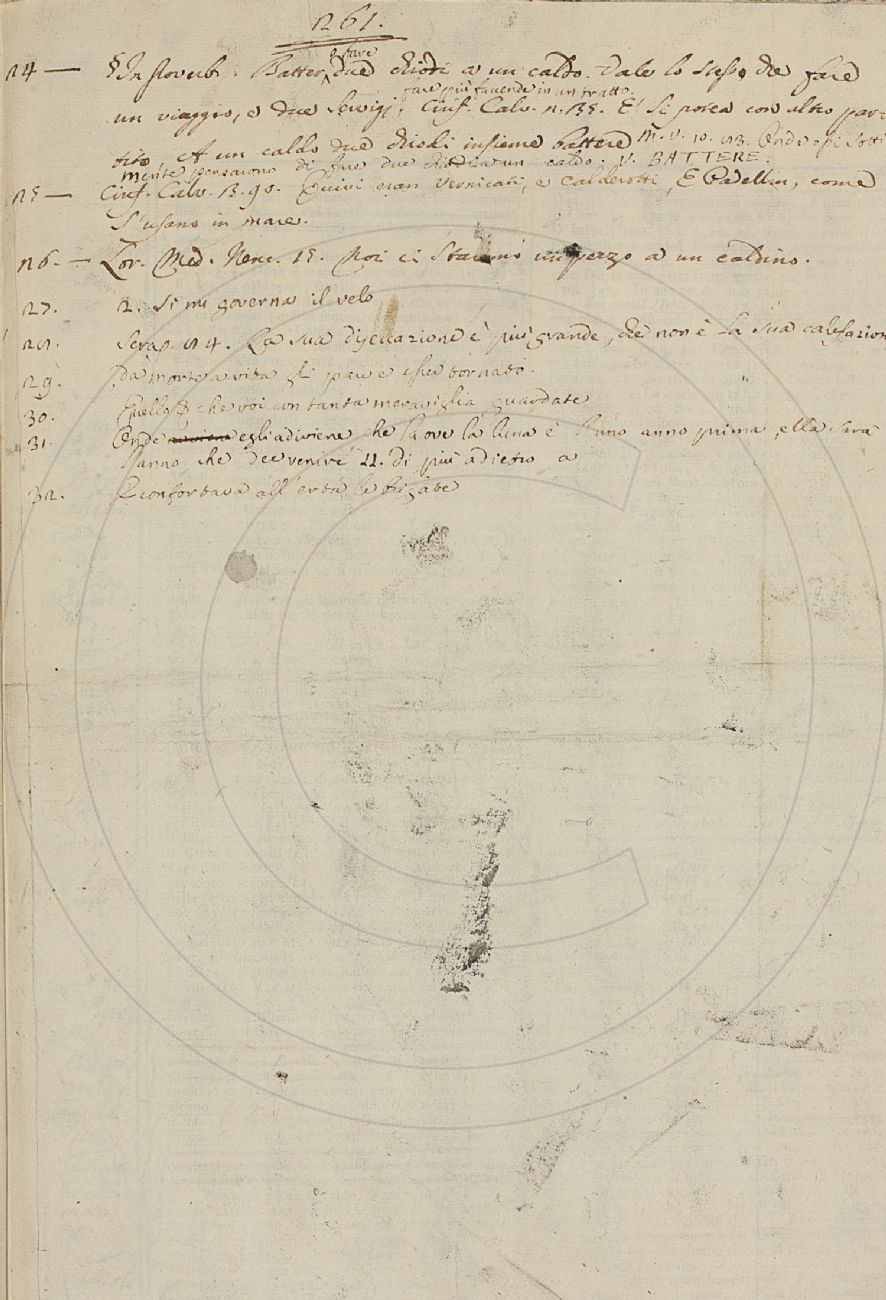 261.
24 — § In proverb. Batter, o fare due chiodi a un caldo. Vale lo stesso che fare
un viaggio, e due servigj; fare più faccende in un tratto. Cirif. Calv. 2. 135. E' si potea con altro par-
tito, A un caldo due chiodi insieme battere M. V. 10. 83. Onde i più sotti
mente pensarono di fare due chiodi a un caldo. V. BATTERE.
25 — Cirif. Calv. 3. 90. Quivi eran vernicati, e calderotti, E Padellin, come
s'usano in mare.
26. — Lor. Med. Nenc. 15. Noi ci staremo un pezzo a un caldino.
27. 2. Si mi governa il velo
28. Serap. 24. La sua è più grande, che non è la sua calefazion
29. Da morte a vita gli parve esser tornato.
30. Quello § che voi con tanta meraviglia guardate
31. Onde egli adiviene che là ove la luna è l'uno anno prima, ella sarà
l'anno che dee venire 11. dì più adietro a
32. E confortava all'erta le brigate